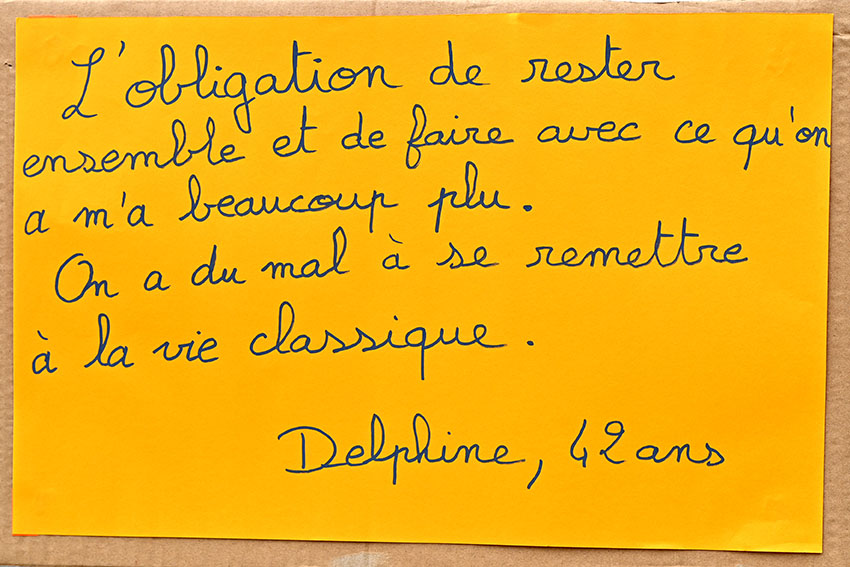 L'obligation de rester
ensemble et de faire avec ce qu'on
a m'a beaucoup plu.
On a du mal à se remettre
à la vie classique.
Delphine, 42 ans